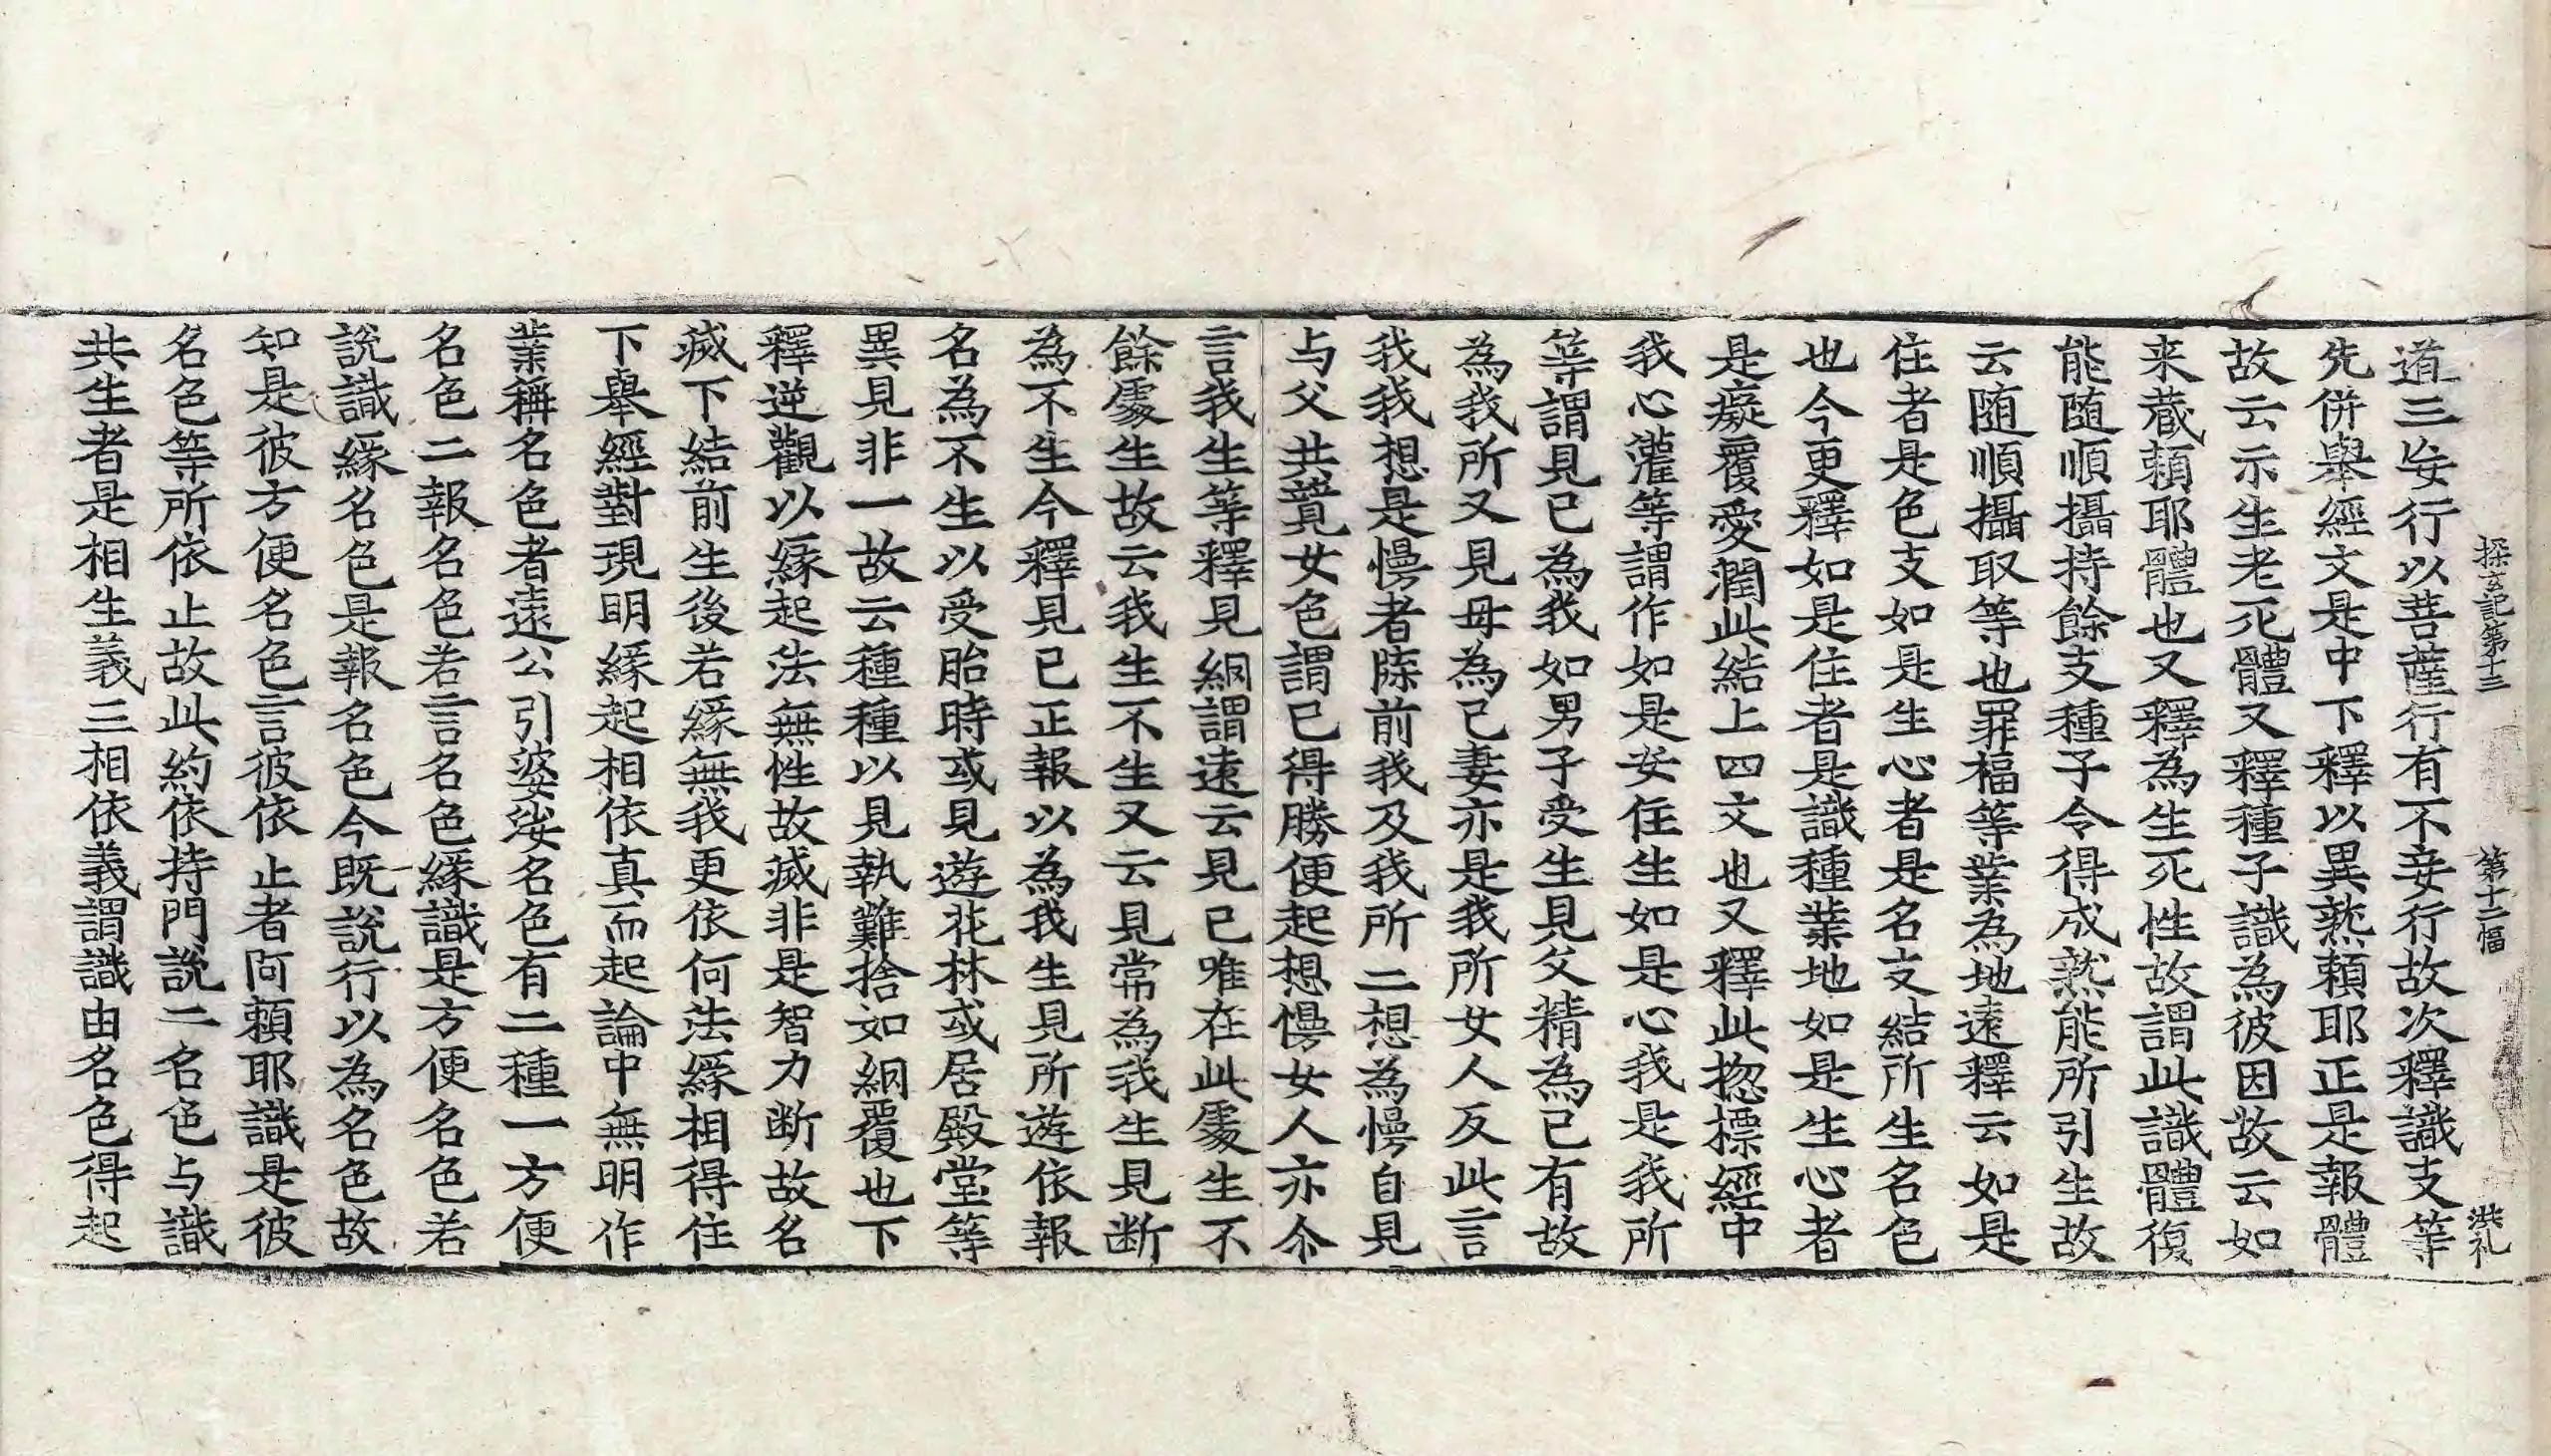 探玄記第十三 第十二幅 洪礼
道三妄行以菩薩行有不妄行故次釋識支等
先併舉經文是中下釋以異熟賴耶正是報體
故云示生老死體又釋種子識為彼因故云如
来蔵賴耶體也又釋為生死性故謂此識體復
能随順攝持餘支種子令得成熟能所引生故
云随順攝取等也罪福等業為地遠釋云如是
住者是色支如是生心者是名支結所生名色
也今更釋如是住者是識種業地如是生心者
是癡覆愛潤此結上四文也又釋此揔標經中
我心灌等謂作如是安住生如是心我是我所
等謂見已為我如男子受生見父精為已有故
為我所又見母為己妻亦是我所女人反此言
我我想是慢者牒前我及我所二想為慢自見
与父共競女色謂已得勝便起想慢女人亦介
言我生等釋見網謂遠云見已唯在此處生不
餘處生故云我生不生又云見常為我生見断
為不生今釋見已正報以為我生見所遊依報
名為不生以受胎時或見遊花林或居殿堂等
異見非一故云種種以見執難捨如網覆也下
釋逆觀以緣起法無性故滅非是智力断故名
滅下結前生後若緣無我更依何法緣相得住
下舉經對現明緣起相依真而起論中無明作
業稱名色者遠公引婆娑名色有二種一方便
名色二報名色若言名色緣識是方便名色若
說識緣名色是報名色今既說行以為名色故
知是彼方便名色言彼依止者阿賴耶識是彼
名色等所依止故此約依持門說二名色与識
共生者是相生義三相依義謂識由名色得起